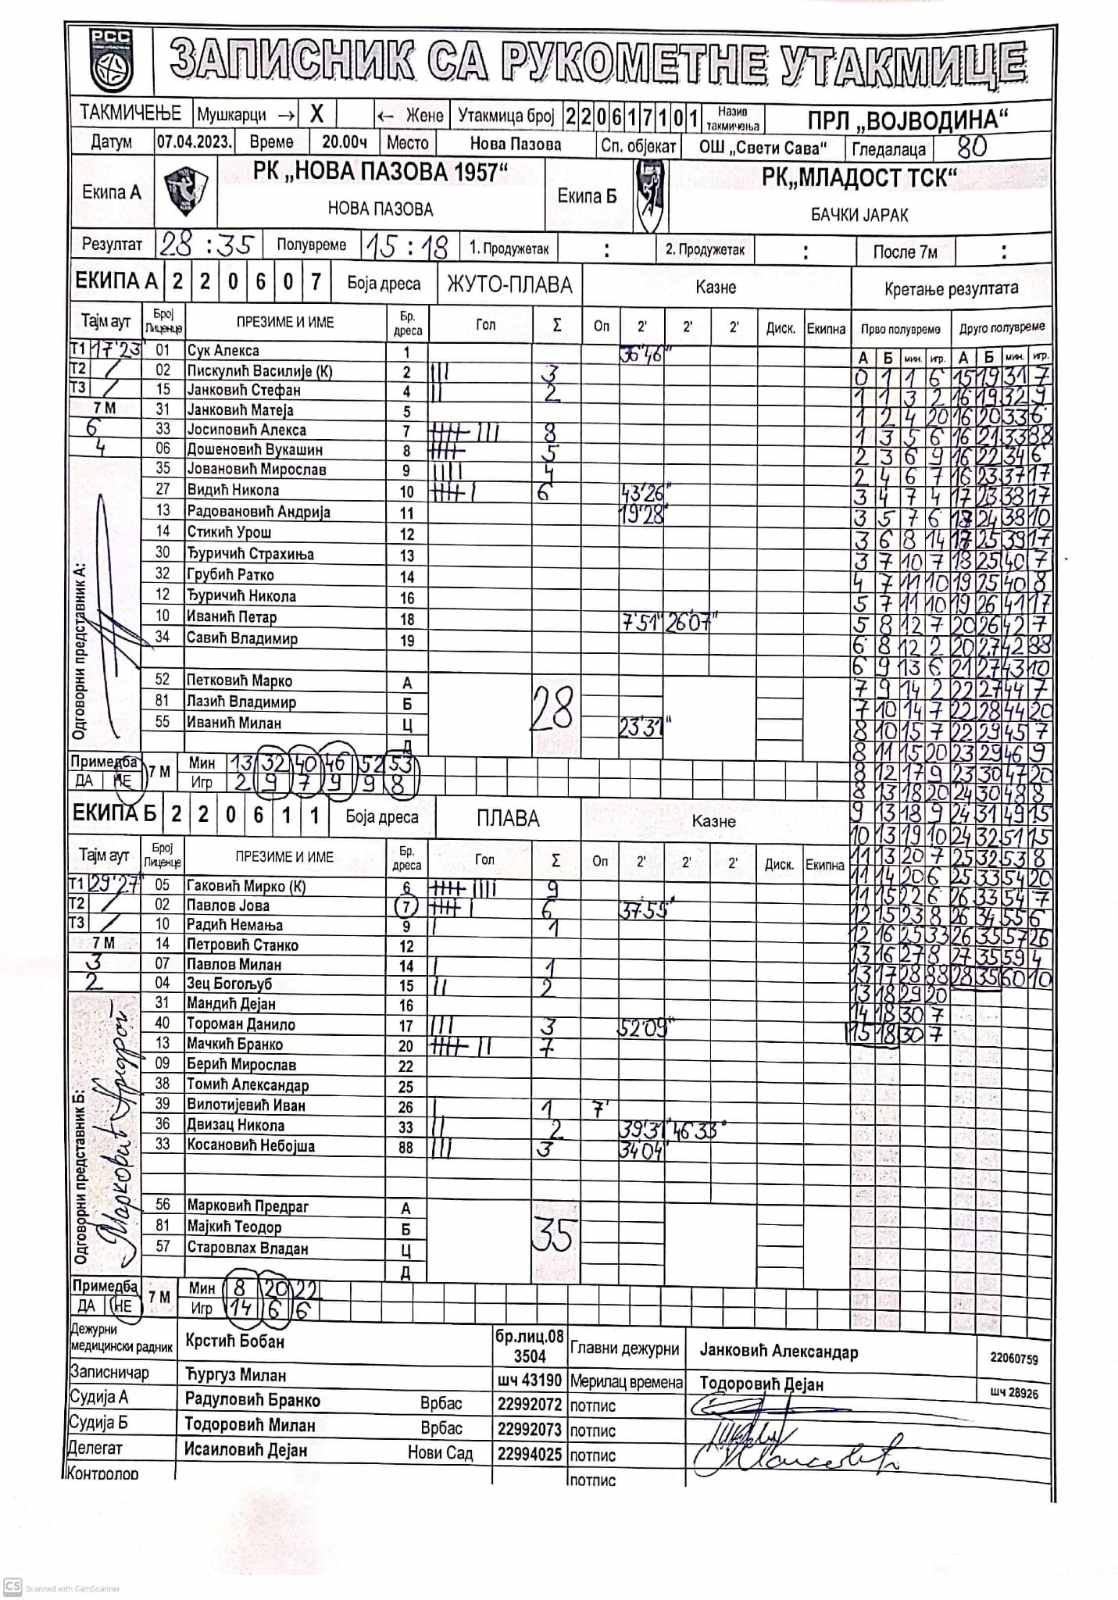 РСС
ЗАПИСНИК СА РУКОМЕТНЕ УТАКМИЦЕ
ТАКМИЧЕЊЕ Мушкарци → X ← Жене Утакмица број 220617101 Назив такмичења ПРЛ „ВОЈВОДИНА“
Датум 07.04.2023. Време 20.00ч Место Нова Пазова Сп. објекат ОШ „Свети Сава“ Гледалаца 80
Екипа А РК „НОВА ПАЗОВА 1957“ НОВА ПАЗОВА Екипа Б РК„МЛАДОСТ ТСК“ БАЧКИ ЈАРАК
Резултат 28 : 35 Полувреме 15 : 18 1. Продужетак : 2. Продужетак : После 7м :
ЕКИПА А 2 2 0 6 0 7 Боја дреса ЖУТО-ПЛАВА Казне Кретање резултата
Тајм аут Број Лиценце ПРЕЗИМЕ И ИМЕ Бр. дреса Гол Σ Оп 2' 2' 2' Диск. Екипна Прво полувреме Друго полувреме
А Б мин. игр. А Б мин. игр.
Т1 17'23" 01 Сук Алекса 1 36'46"
Т2 / 02 Пискулић Василије (К) 2 III 3
Т3 / 15 Јанковић Стефан 4 II 2
7 М 31 Јанковић Матеја 5
6 33 Јосиповић Алекса 7 IIIII III 8
4 06 Дошеновић Вукашин 8 IIIII 5
35 Јовановић Мирослав 9 IIII 4
27 Видић Никола 10 IIIII I 6 43'26"
13 Радовановић Андрија 11 19'28"
14 Стикић Урош 12
30 Ђуричић Страхиња 13
32 Грубић Ратко 14
12 Ђуричић Никола 16
10 Иванић Петар 18 7'51" 26'07"
34 Савић Владимир 19
Одговорни представник А:
52 Петковић Марко А
81 Лазић Владимир Б 28
55 Иванић Милан Ц 23'31"
Д
Примедба ДА НЕ 7 М Мин 13 32 40 46 52 53
Игр 2 9 7 9 9 8
0 1 1 6 15 19 31 7
1 1 3 2 16 19 32 9
1 2 4 20 16 20 33 6
1 3 5 6 16 21 33 88
2 3 6 9 16 22 34 6
2 4 6 7 16 23 37 17
3 4 7 4 17 23 38 17
3 5 7 6 17 24 38 10
3 6 8 14 17 25 39 17
3 7 10 7 18 25 40 7
4 7 11 10 19 25 40 8
5 7 11 10 19 26 41 17
5 8 12 7 20 26 42 7
6 8 12 2 20 27 42 88
6 9 13 6 21 27 43 10
7 9 14 2 22 27 44 7
7 10 14 7 22 28 44 20
8 10 15 7 22 29 45 7
8 11 15 20 23 29 46 9
8 12 17 9 23 30 47 20
8 13 18 20 24 30 48 8
9 13 18 9 24 31 49 15
10 13 19 10 24 32 51 15
11 13 20 7 25 32 53 8
11 14 20 6 25 33 54 20
11 15 22 6 26 33 54 7
12 15 23 8 26 34 55 6
12 16 25 33 26 35 57 26
13 16 27 8 27 35 59 4
13 17 28 88 28 35 60 10
13 18 29 20
14 18 30 7
15 18 30 7
ЕКИПА Б 2 2 0 6 1 1 Боја дреса ПЛАВА Казне
Тајм аут Број Лиценце ПРЕЗИМЕ И ИМЕ Бр. дреса Гол Σ Оп 2' 2' 2' Диск. Екипна
Т1 29'27" 05 Гаковић Мирко (К) 6 IIIII IIII 9
Т2 / 02 Павлов Јова 7 IIIII I 6 37'55"
Т3 / 10 Радић Немања 9 I 1
7 М 14 Петровић Станко 12
3 07 Павлов Милан 14 I 1
2 04 Зец Богољуб 15 II 2
31 Мандић Дејан 16
40 Тороман Данило 17 III 3 52'09"
13 Мачкић Бранко 20 IIIII II 7
09 Берић Мирослав 22
38 Томић Александар 25
39 Вилотијевић Иван 26 I 1 7'
36 Двизац Никола 33 II 2 39'31" 46'33"
33 Косановић Небојша 88 III 3 34'04"
Одговорни представник Б: Марковић Предраг
56 Марковић Предраг А
81 Мајкић Теодор Б 35
57 Старовлах Владан Ц
Д
Примедба ДА НЕ 7 М Мин 8 20 22
Игр 14 6 6
Дежурни медицински радник Крстић Бобан бр.лиц.08 3504 Главни дежурни Јанковић Александар 22060759
Записничар Ђургуз Милан шч 43190 Мерилац времена Тодоровић Дејан шч 28926
Судија А Радуловић Бранко Врбас 22992072 потпис
Судија Б Тодоровић Милан Врбас 22992073 потпис
Делегат Исаиловић Дејан Нови Сад 22994025 потпис
Контролор потпис
CS Scanned with CamScanner